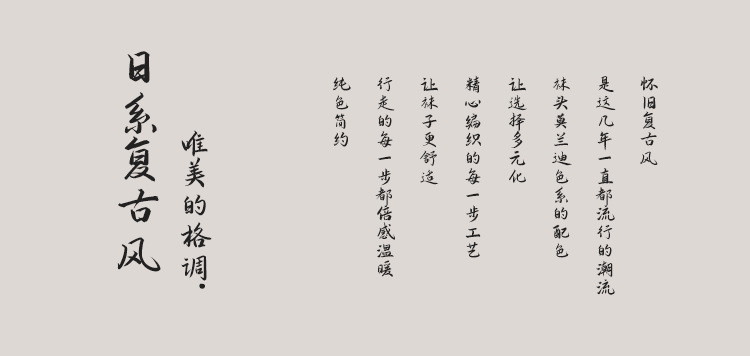 日系复古风
唯美的格调.
怀旧复古风
是这几年一直都流行的潮流
袜头莫兰迪色系的配色
让选择多元化
精心编织的每一步工艺
让袜子更舒适
行走的每一步都倍感温暖
纯色简约